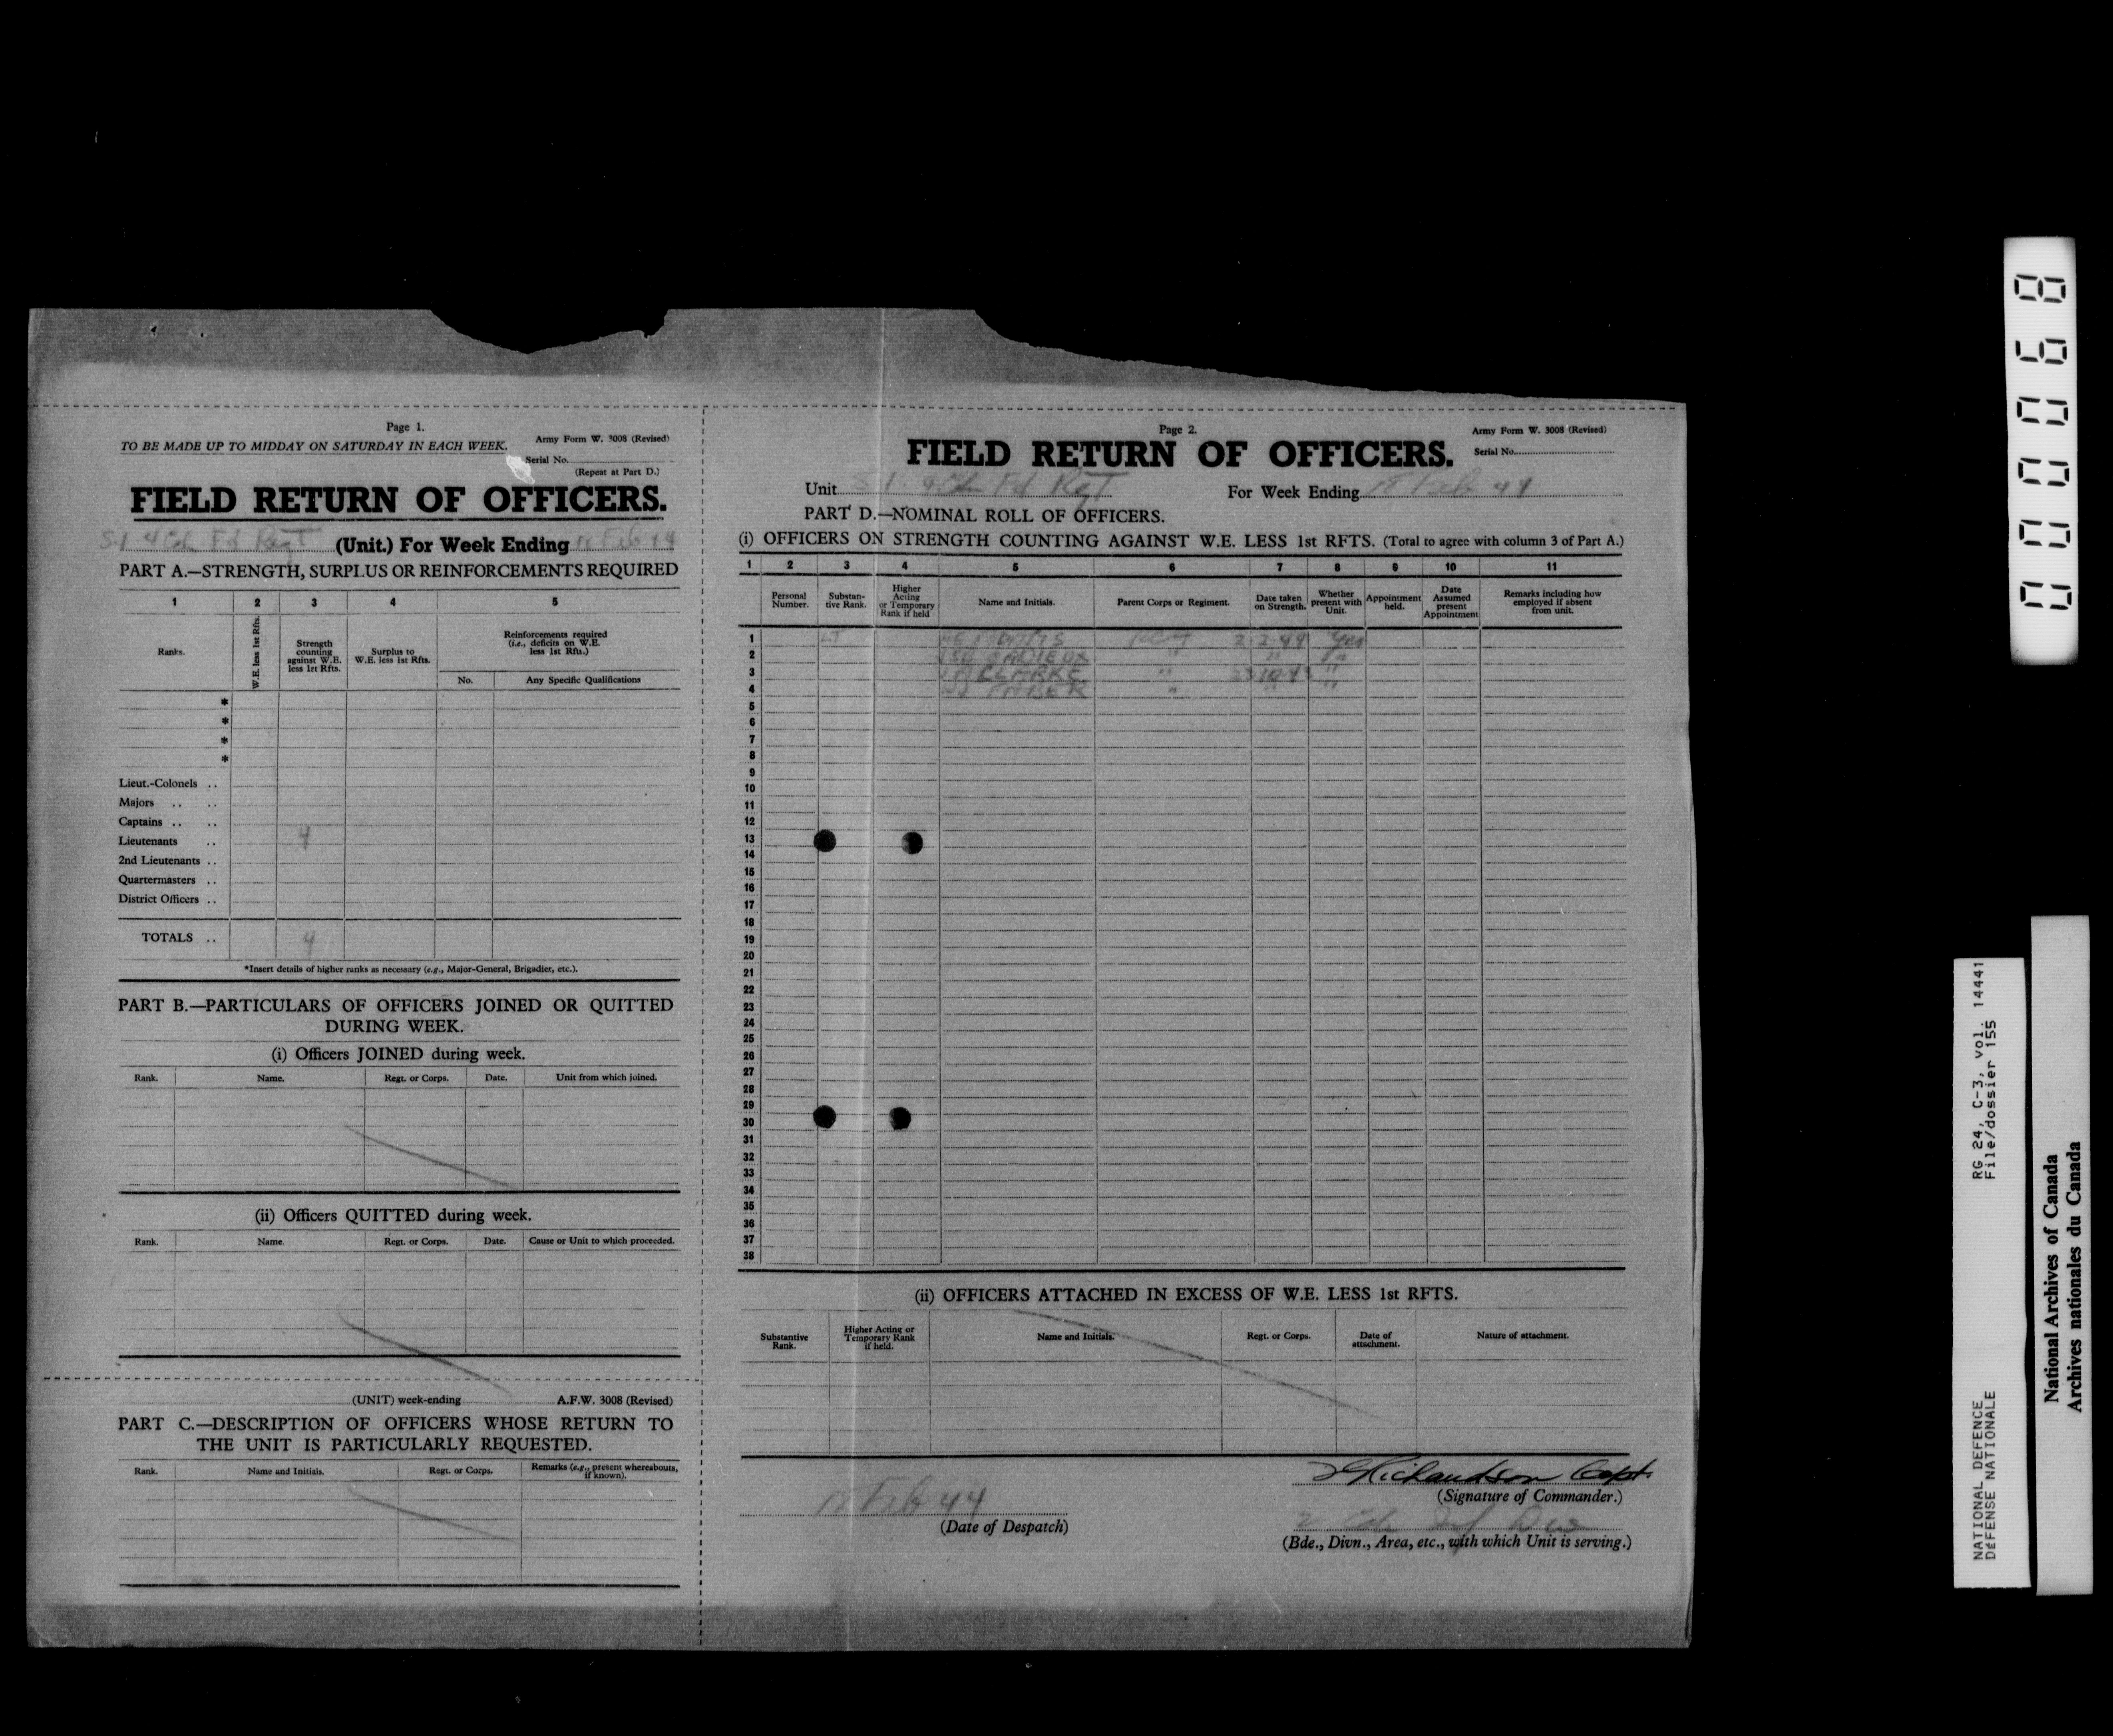 Page 1.
TO BE MADE UP TO MIDDAY ON SATURDAY IN EACH WEEK.
Army Form W. 3008 (Revised)
Serial No.
(Repeat at Part D.)
FIELD RETURN OF OFFICERS.
Fd Regt (Unit.) For Week Ending Feb 44
PART A.—STRENGTH, SURPLUS OR REINFORCEMENTS REQUIRED
1 2 3 4 5
Ranks.
W.E. less 1st Rfts.
Strength counting against W.E. less 1st Rfts.
Surplus to W.E. less 1st Rfts.
Reinforcements required (i.e., deficits on W.E. less 1st Rfts.)
No. Any Specific Qualifications
*
*
*
*
Lieut.-Colonels ..
Majors .. ..
Captains .. ..
Lieutenants .. 4
2nd Lieutenants ..
Quartermasters ..
District Officers ..
TOTALS .. 4
*Insert details of higher ranks as necessary (e.g., Major-General, Brigadier, etc.).
PART B.—PARTICULARS OF OFFICERS JOINED OR QUITTED
DURING WEEK.
(i) Officers JOINED during week.
Rank. Name. Regt. or Corps. Date. Unit from which joined.
(ii) Officers QUITTED during week.
Rank. Name. Regt. or Corps. Date. Cause or Unit to which proceeded.
(UNIT) week-ending A.F.W. 3008 (Revised)
PART C.—DESCRIPTION OF OFFICERS WHOSE RETURN TO
THE UNIT IS PARTICULARLY REQUESTED.
Rank. Name and Initials. Regt. or Corps. Remarks (e.g., present whereabouts, if known).
Page 2.
Army Form W. 3008 (Revised)
Serial No.
FIELD RETURN OF OFFICERS.
Unit Fd Regt For Week Ending Feb 44
PART D.—NOMINAL ROLL OF OFFICERS.
(i) OFFICERS ON STRENGTH COUNTING AGAINST W.E. LESS 1st RFTS. (Total to agree with column 3 of Part A.)
1 2 3 4 5 6 7 8 9 10 11
Personal Number.
Substantive Rank.
Higher Acting or Temporary Rank if held
Name and Initials.
Parent Corps or Regiment.
Date taken on Strength.
Whether present with Unit.
Appointment held.
Date Assumed present Appointment
Remarks including how employed if absent from unit.
1 LT 2 2 44 Yes
2 CADIEUX " "
3 CLARKE " "
4 " " "
5
6
7
8
9
10
11
12
13
14
15
16
17
18
19
20
21
22
23
24
25
26
27
28
29
30
31
32
33
34
35
36
37
38
(ii) OFFICERS ATTACHED IN EXCESS OF W.E. LESS 1st RFTS.
Substantive Rank.
Higher Acting or Temporary Rank if held.
Name and Initials.
Regt. or Corps.
Date of attachment.
Nature of attachment.
Richardson Capt.
(Signature of Commander.)
Feb 44
(Date of Despatch)
2 Cdn Inf Div
(Bde., Divn., Area, etc., with which Unit is serving.)
000068
RG 24, C-3, vol. 14441
File/dossier 155
NATIONAL DEFENCE
DÉFENSE NATIONALE
National Archives of Canada
Archives nationales du Canada